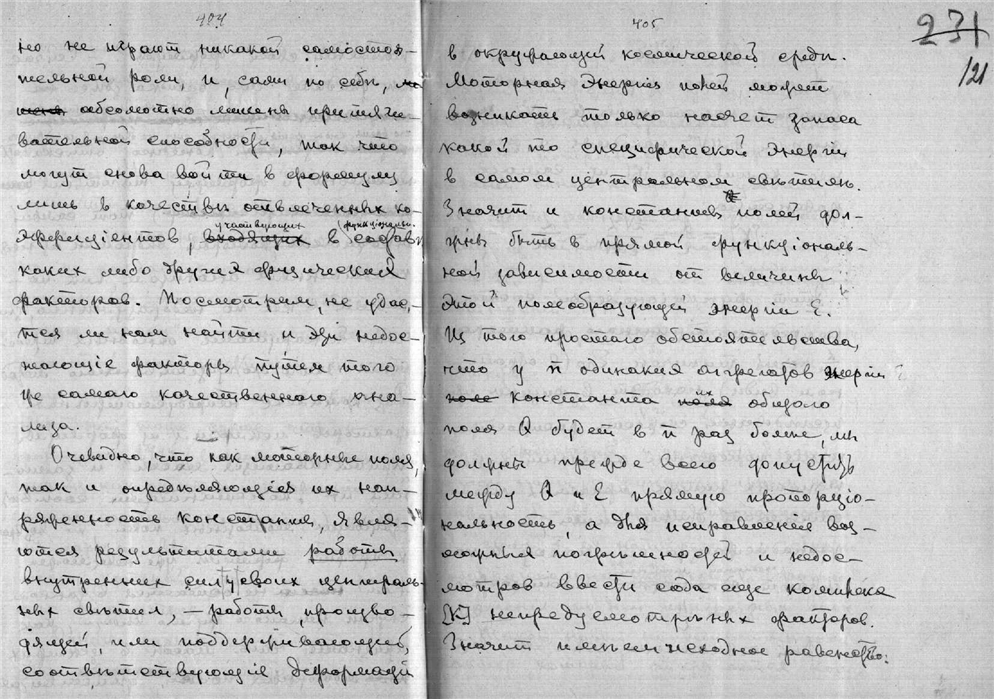 404
но не играют никакой самостоя-
тельной роли и, сами по себѣ,
абсолютно лишены притяги-
вательной способности, так что
могут снова войти в формулу
лишь в качествѣ отвлеченных ко-
участвующих
эффициентов, входящих в состав
каких либо других физических
факторов. Посмотрим, не удас-
тся ли нам найти и эти недос-
тающіе факторы путем того
же самаго качественнаго ана-
лиза.
Очевидно, что как моторные поля,
так и опредѣляющія их нап-
ряженность константы, явля-
ются результатами работы
внутренних сил своих централь-
ных свѣтил, — работы, произво-
дящей, или поддерживающей,
соотвѣтствующія деформаціи
405
231
121
в окружающей космической средѣ.
Моторная энергія полей может
возникать только насчет запаса
какой то специфической энергіи
в самом центральном свѣтилѣ.
Значит и константы полей дол-
жны быть в прямой функціональ-
ной зависимости от величины
этой полеобразующей энергіи E.
Из того простого обстоятельства,
что у n одинаких агрегатов энергіи
поле константа их общаго
поля Q будет в n раз больше, мы
должны прежде всего допустить
между Q и E прямую пропорціо-
нальность, а для исправленія воз-
можных погрѣшностей и недос-
мотров ввести сюда еще комплекс
[K] непредусмотрѣнных факторов.
Значит имѣем исходное равенство: